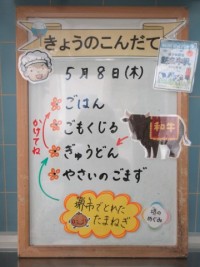 きょうのこんだて
5月8日(木)
ごはん
ごもくじる
ぎゅうどん
やさいのごまず
かけてね
和牛
堺市でとれた
たまねぎ
畑のめぐみ